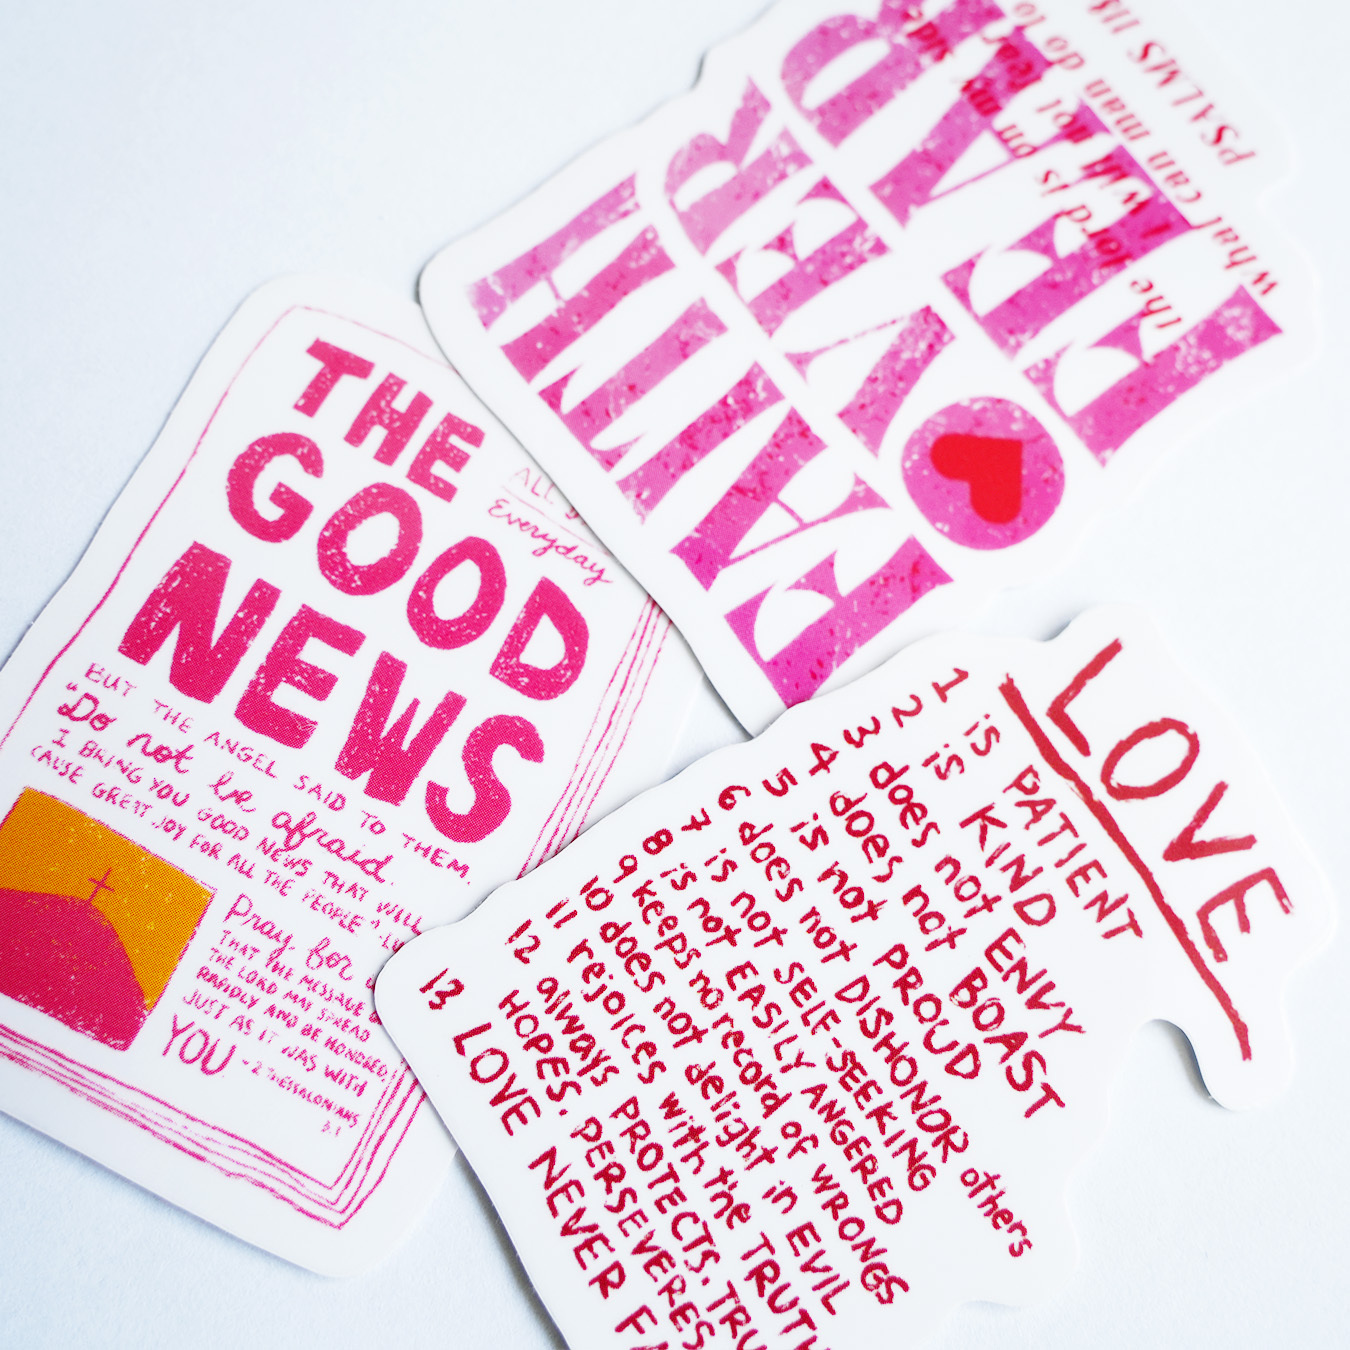 FAITH
OVER
FEAR
The lord is on my side
I will not fear
what can man do to
PSALMS 118
THE
GOOD
NEWS
ALL
Everyday
BUT THE ANGEL SAID TO THEM,
"Do not be afraid.
I BRING YOU GOOD NEWS THAT WILL
CAUSE GREAT JOY FOR ALL THE PEOPLE"
Pray for
THAT THE MESSAGE
THE LORD MAY SPREAD
RAPIDLY AND BE HONORED,
JUST AS IT WAS WITH
YOU - 2 THESSALONIANS
3:1
LOVE
1 is PATIENT
2 is KIND
3 does not ENVY
4 does not BOAST
5 is not PROUD
6 does not DISHONOR others
7 is not SELF-SEEKING
8 is not EASILY ANGERED
9 keeps no record of WRONGS
10 does not delight in EVIL
11 rejoices with the TRUTH
12 always PROTECTS, TRU
HOPES, PERSEVERES
13 LOVE NEVER FA